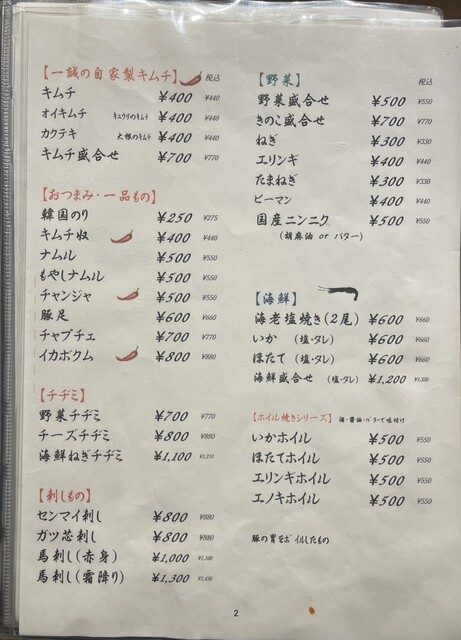 【一誠の自家製キムチ】 税込
キムチ ¥400 ¥440
オイキムチ キュウリのキムチ ¥400 ¥440
カクテキ 大根のキムチ ¥400 ¥440
キムチ盛合せ ¥700 ¥770
【おつまみ・一品もの】
韓国のり ¥250 ¥275
キムチ奴 ¥400 ¥440
ナムル ¥500 ¥550
もやしナムル ¥500 ¥550
チャンジャ ¥500 ¥550
豚足 ¥600 ¥660
チャプチェ ¥700 ¥770
イカポクム ¥800 ¥880
【チヂミ】
野菜チヂミ ¥700 ¥770
チーズチヂミ ¥800 ¥880
海鮮ねぎチヂミ ¥1,100 ¥1,210
【刺しもの】
センマイ刺し ¥800 ¥880
ガツ芯刺し ¥800 ¥880
馬刺し(赤身) ¥1,000 ¥1,100
馬刺し(霜降り) ¥1,300 ¥1,430
【野菜】 税込
野菜盛合せ ¥500 ¥550
きのこ盛合せ ¥700 ¥770
ねぎ ¥300 ¥330
エリンギ ¥400 ¥440
たまねぎ ¥300 ¥330
ピーマン ¥400 ¥440
国産ニンニク ¥500 ¥550
(胡麻油 or バター)
【海鮮】
海老塩焼き(2尾) ¥600 ¥660
いか (塩・タレ) ¥600 ¥660
ほたて (塩・タレ) ¥600 ¥660
海鮮盛合せ (塩・タレ) ¥1,200 ¥1,320
【ホイル焼きシリーズ】 酒・醤油・バターで味付け
いかホイル ¥500 ¥550
ほたてホイル ¥500 ¥550
エリンギホイル ¥500 ¥550
エノキホイル ¥500 ¥550
豚の胃をボイルしたもの
2